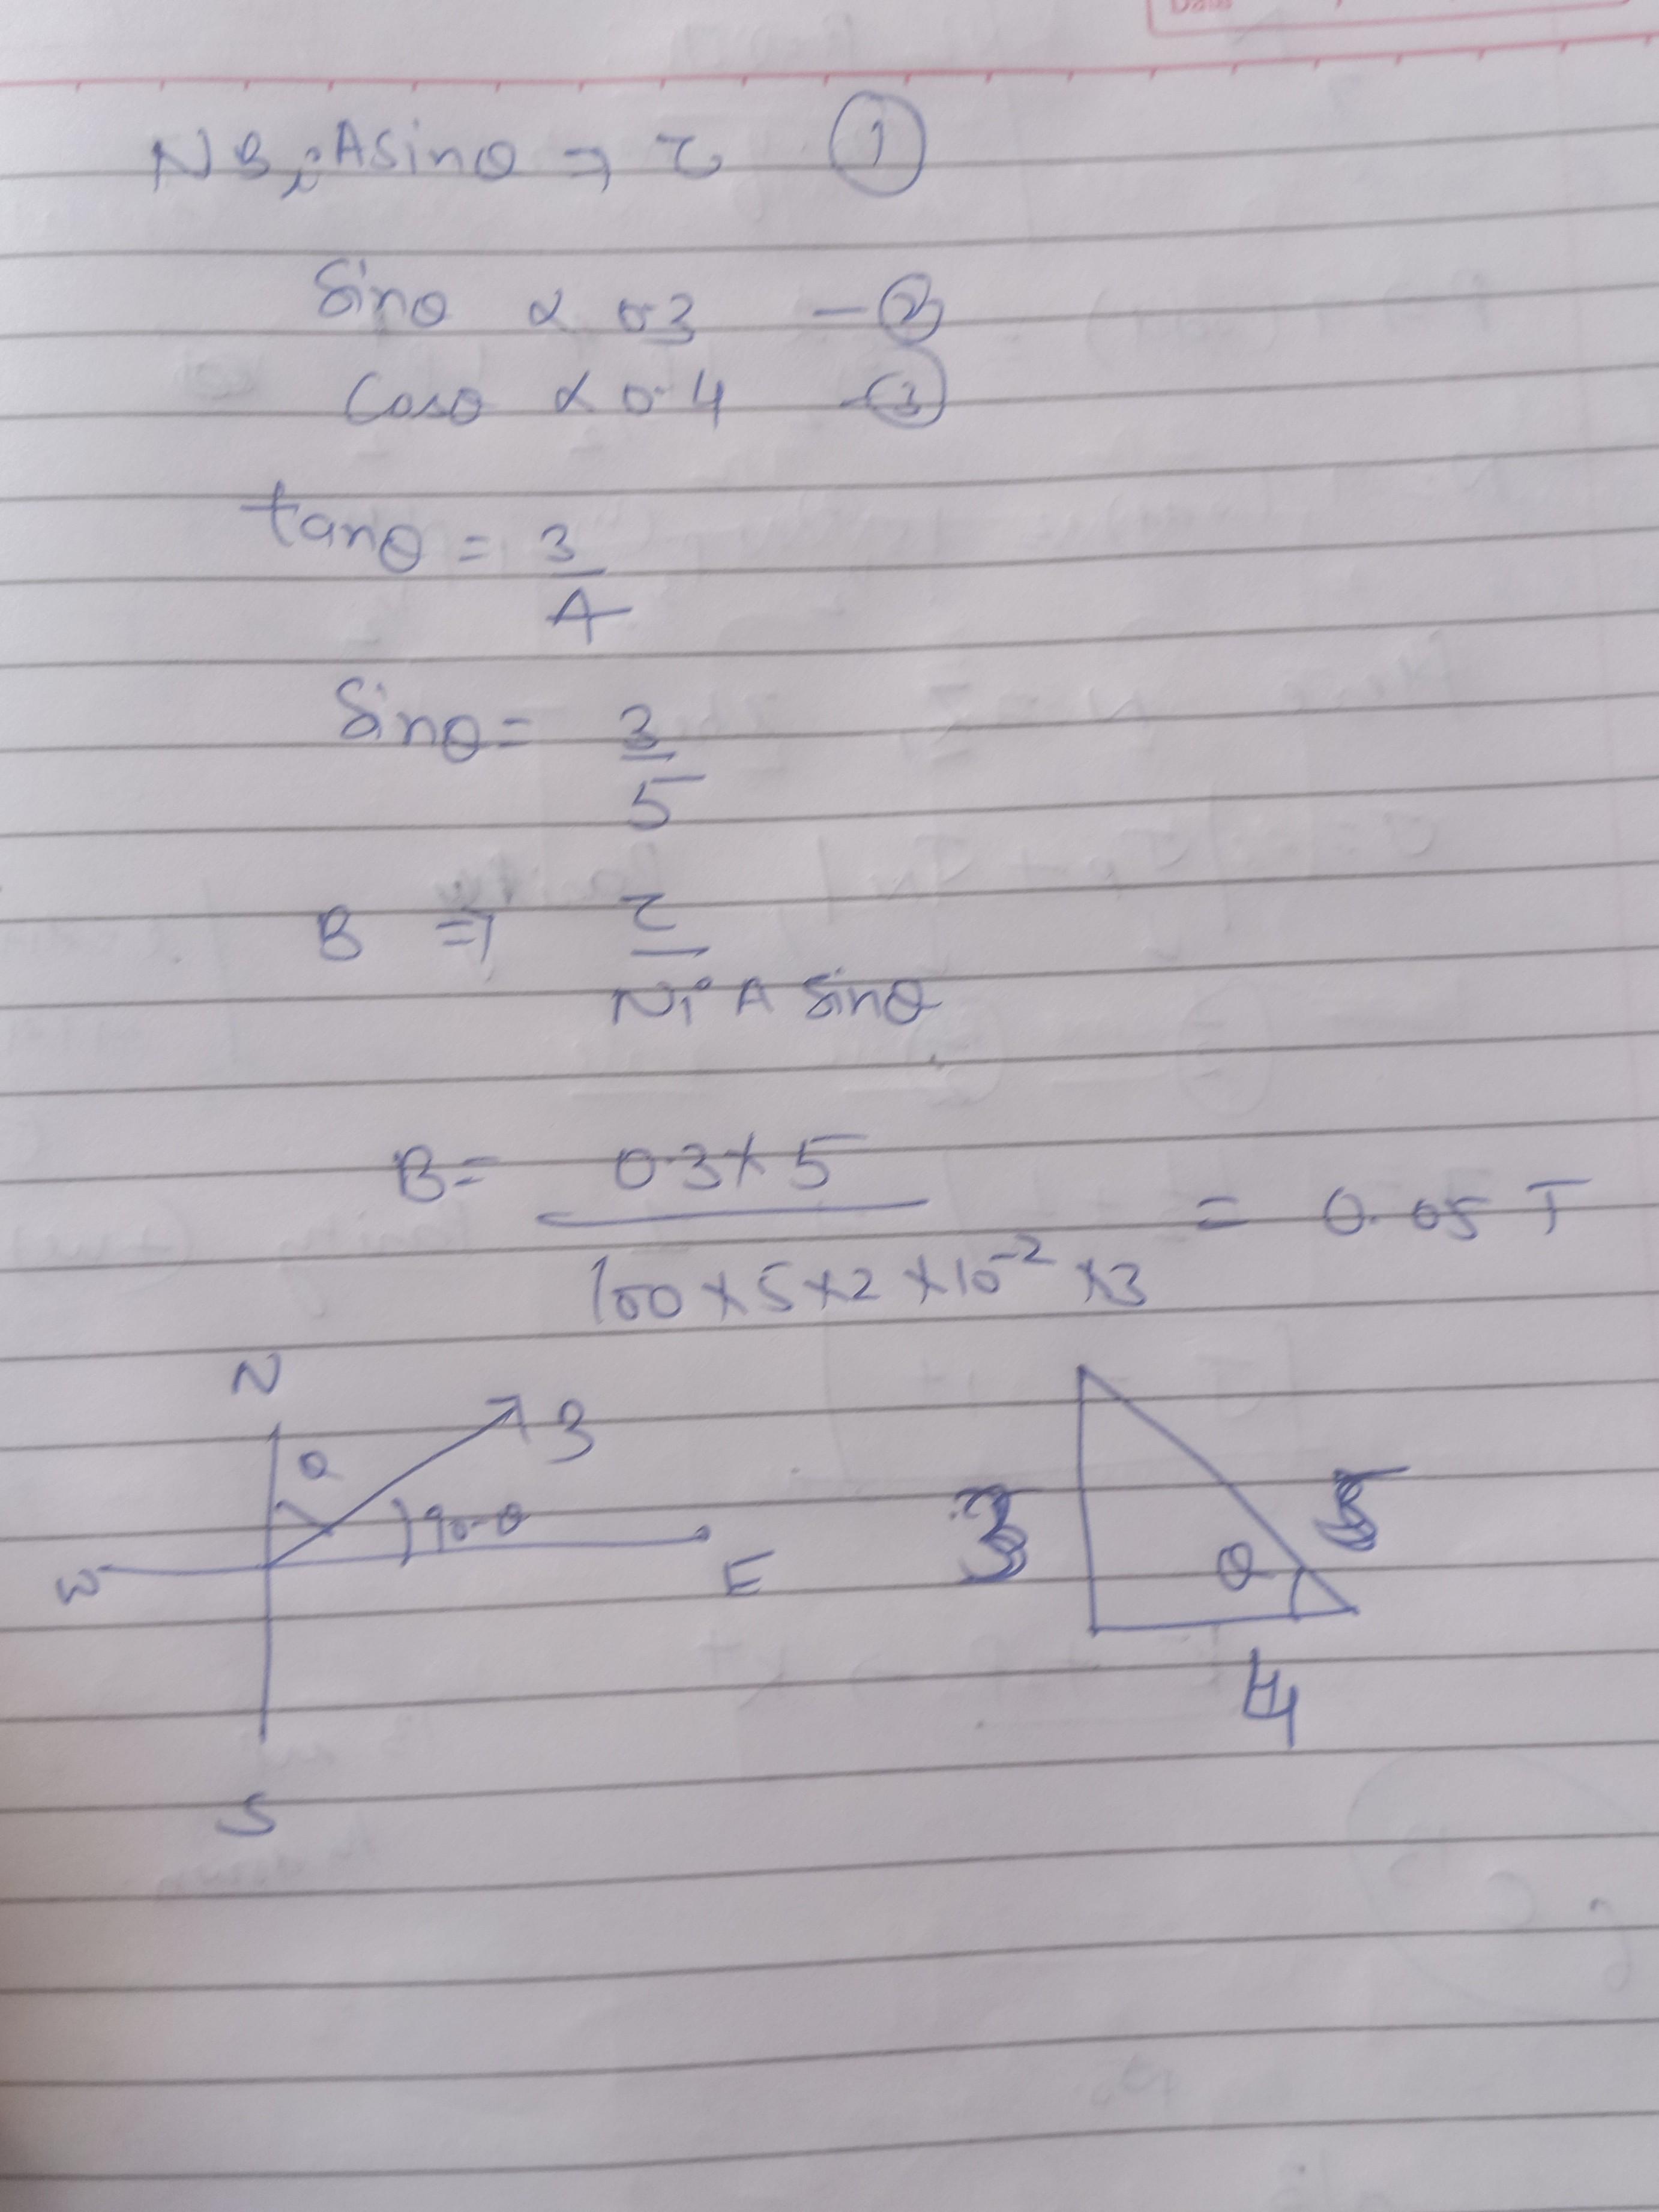 Date
NBiA sinθ ⇒ τ ①
Sinθ α 0.3 - ②
Cosθ α 0.4 - ③
tanθ = 3/4
Sinθ = 3/5
B ⇒ τ/NiA sinθ
B = 0.3×5/100×5×2×10⁻²×3 = 0.05 T
N
θ
B
90-θ
W
E
S
3
5
θ
4